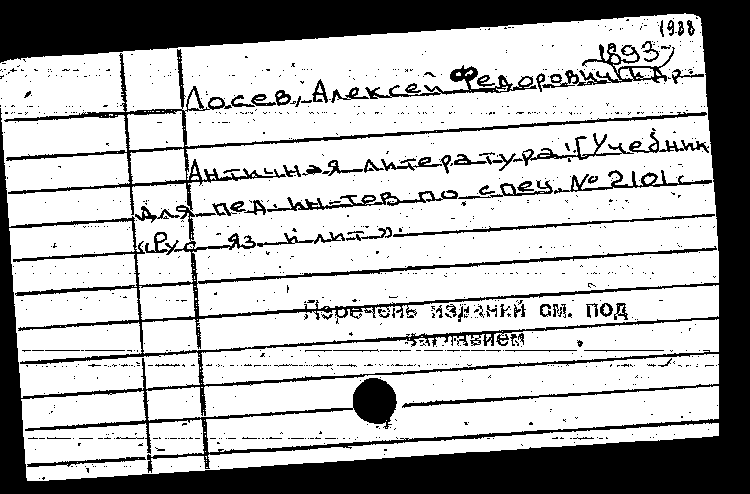 1988
1893-
Лосев, Алексей Федорович и др.
Античная литература: [Учебник
для пед. ин-тов по спец. № 2101
«Рус. яз. и лит.».
Перечень изданий см. под
заглавием